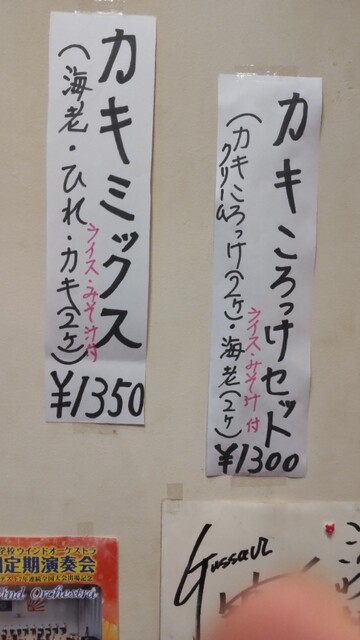 カキころっけセット
(カキクリームころっけ(2ケ)・海老(2ケ)
ライス・みそ汁付
¥1300
カキミックス
(海老・ひれ・カキ(2ケ))
ライス・みそ汁付
¥1350
学校ウインドオーケストラ
定期演奏会
Wind Orchestra